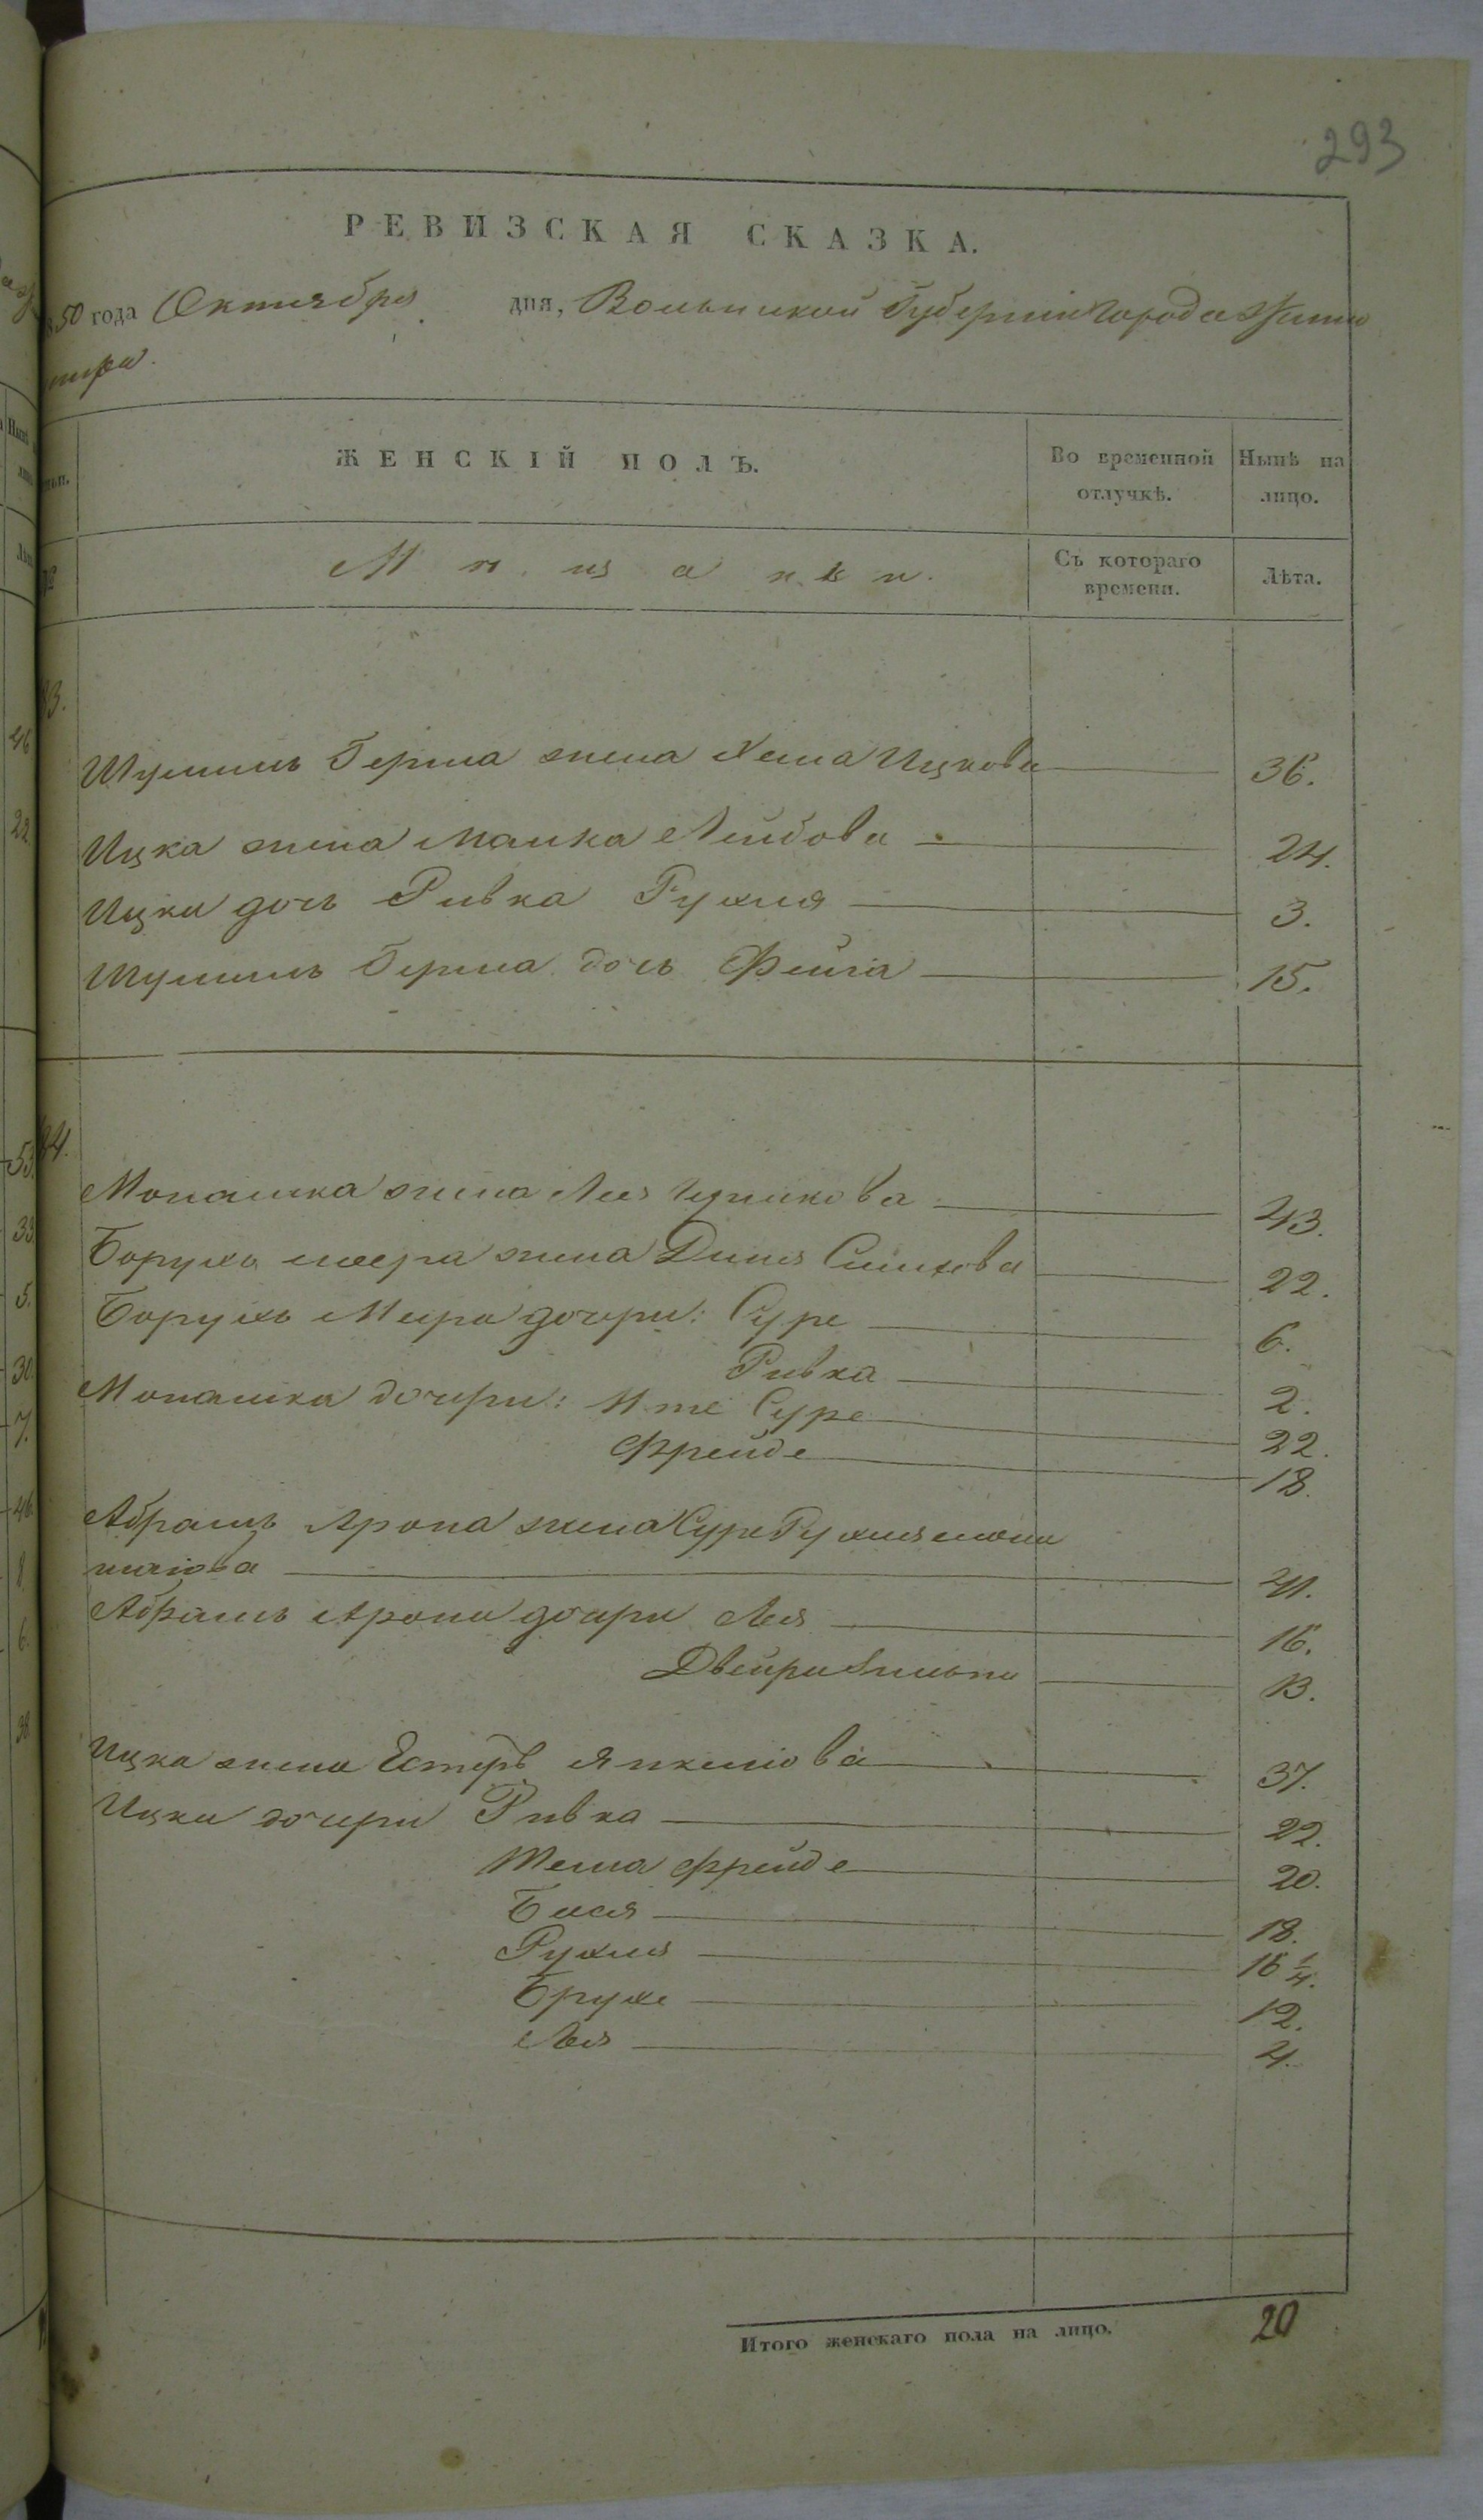 293
РЕВИЗСКАЯ СКАЗКА.
50 года Октября дня, Волынской Губерніи Города Жито
мира.
ЖЕНСКІЙ ПОЛЪ.
Во временной отлучкѣ.
Нынѣ на лицо.
Мѣщанки.
Съ котораго времени.
Лѣта.
3.
Шулимъ Герша жена Хана Ицкова 36.
Ицка жена Малка Лейбова 24.
Ицки дочь Ривка Рухля 3.
Шулимъ Герша дочь Фейга 15.
4.
Монашка жена Лея Ицикова 43.
Борухъ меера жена Диня 22.
Борухъ Меера дочери: Суре 6.
Ривка 2.
Монашка дочери: Ите Суре 22.
Фрейде 18.
Абрамъ Арона жена Суре Рухля мона
шкова 41.
Абрамъ Арона дочери Лея 16.
Двейра 13.
Ицка жена Естеръ Янкелiова 37.
Ицки дочери Ривка 22.
Фрейде 20.
Бася 18.
Рухля 16 1/4.
Брухе 12.
Лея 4.
Итого женскаго пола на лицо. 20